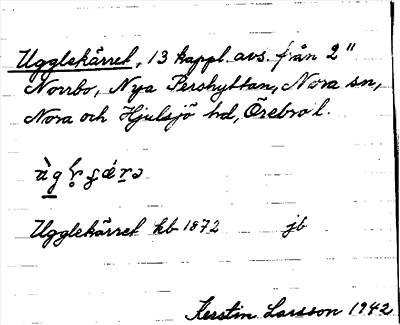 Ugglekärret, 13 kappl. avs. från 2"
Norrbo, Nya Pershyttan, Nora sn,
Nora och Hjulsjö hd, Örebro l.
Ugglekärret hb 1872 jb
Kerstin Larsson 1942